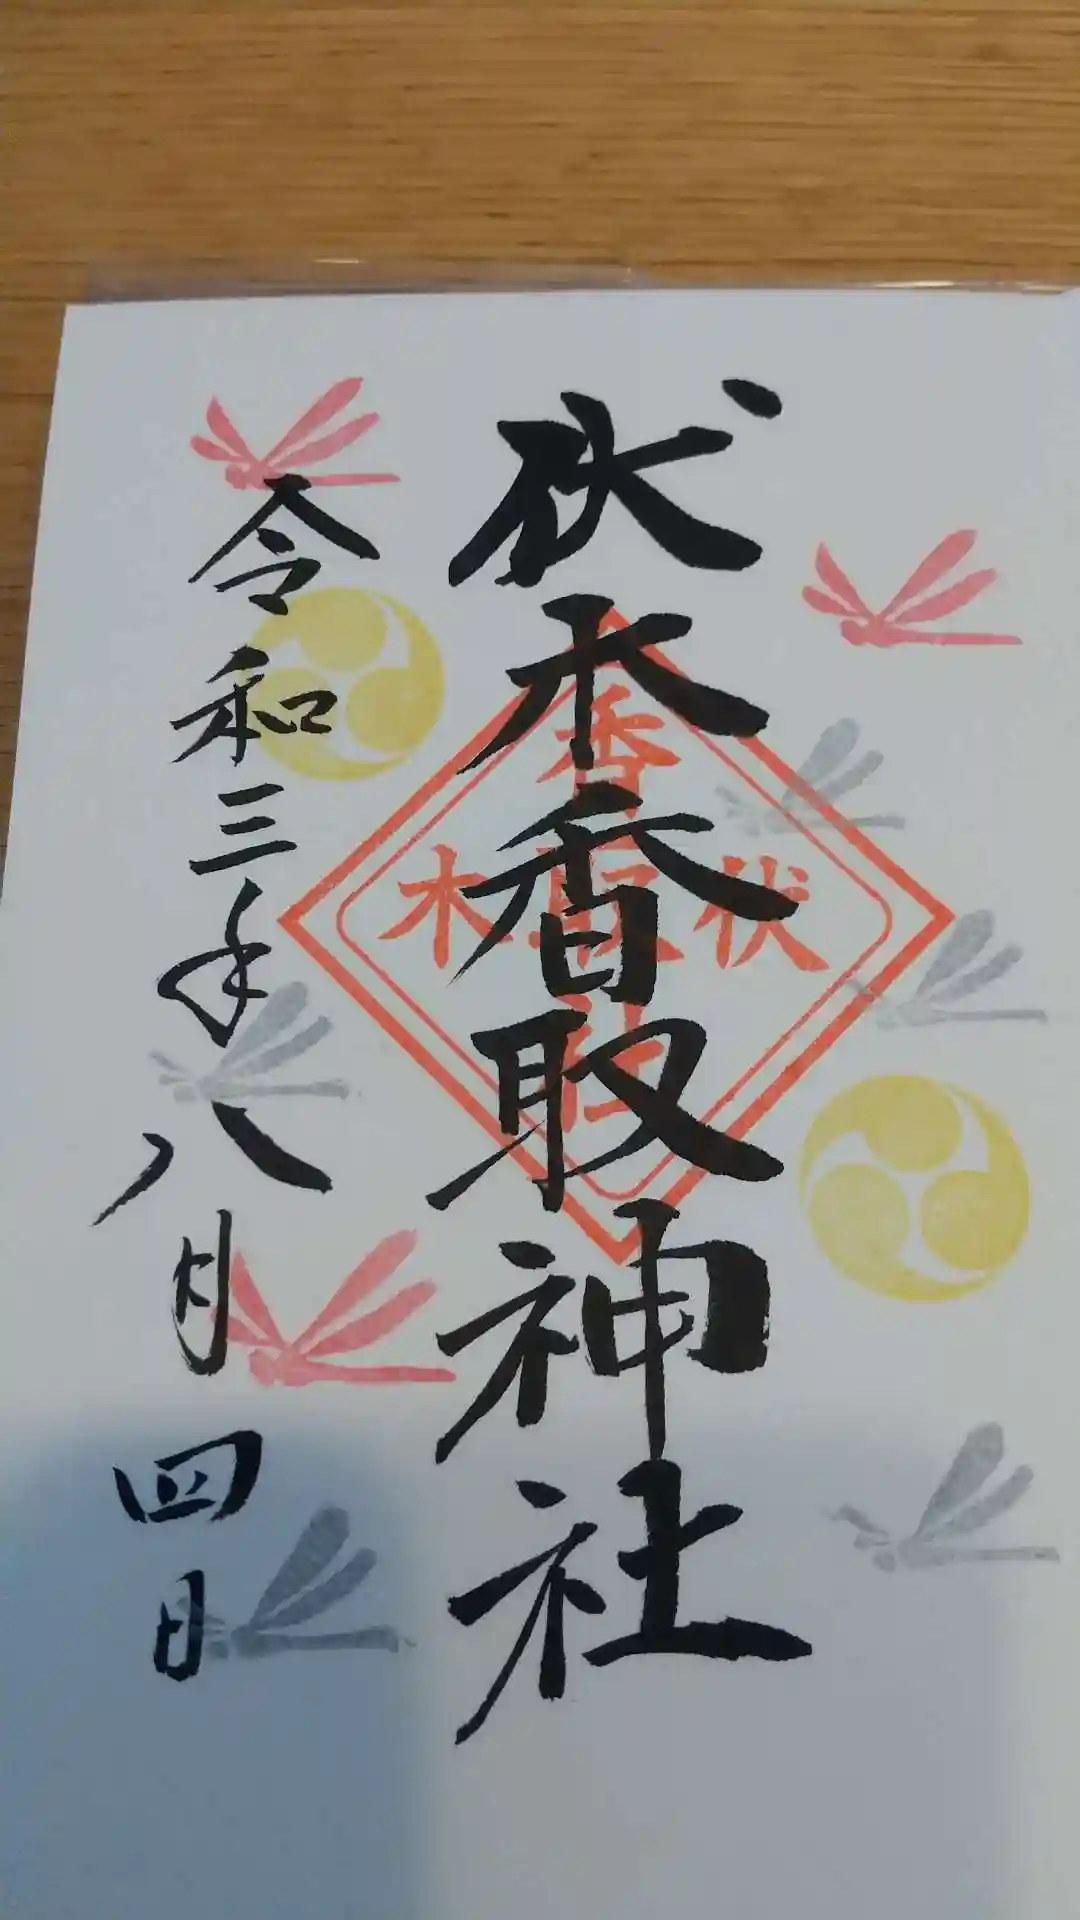 伏木香取神社
令和三年八月四日
香
伏取木
社